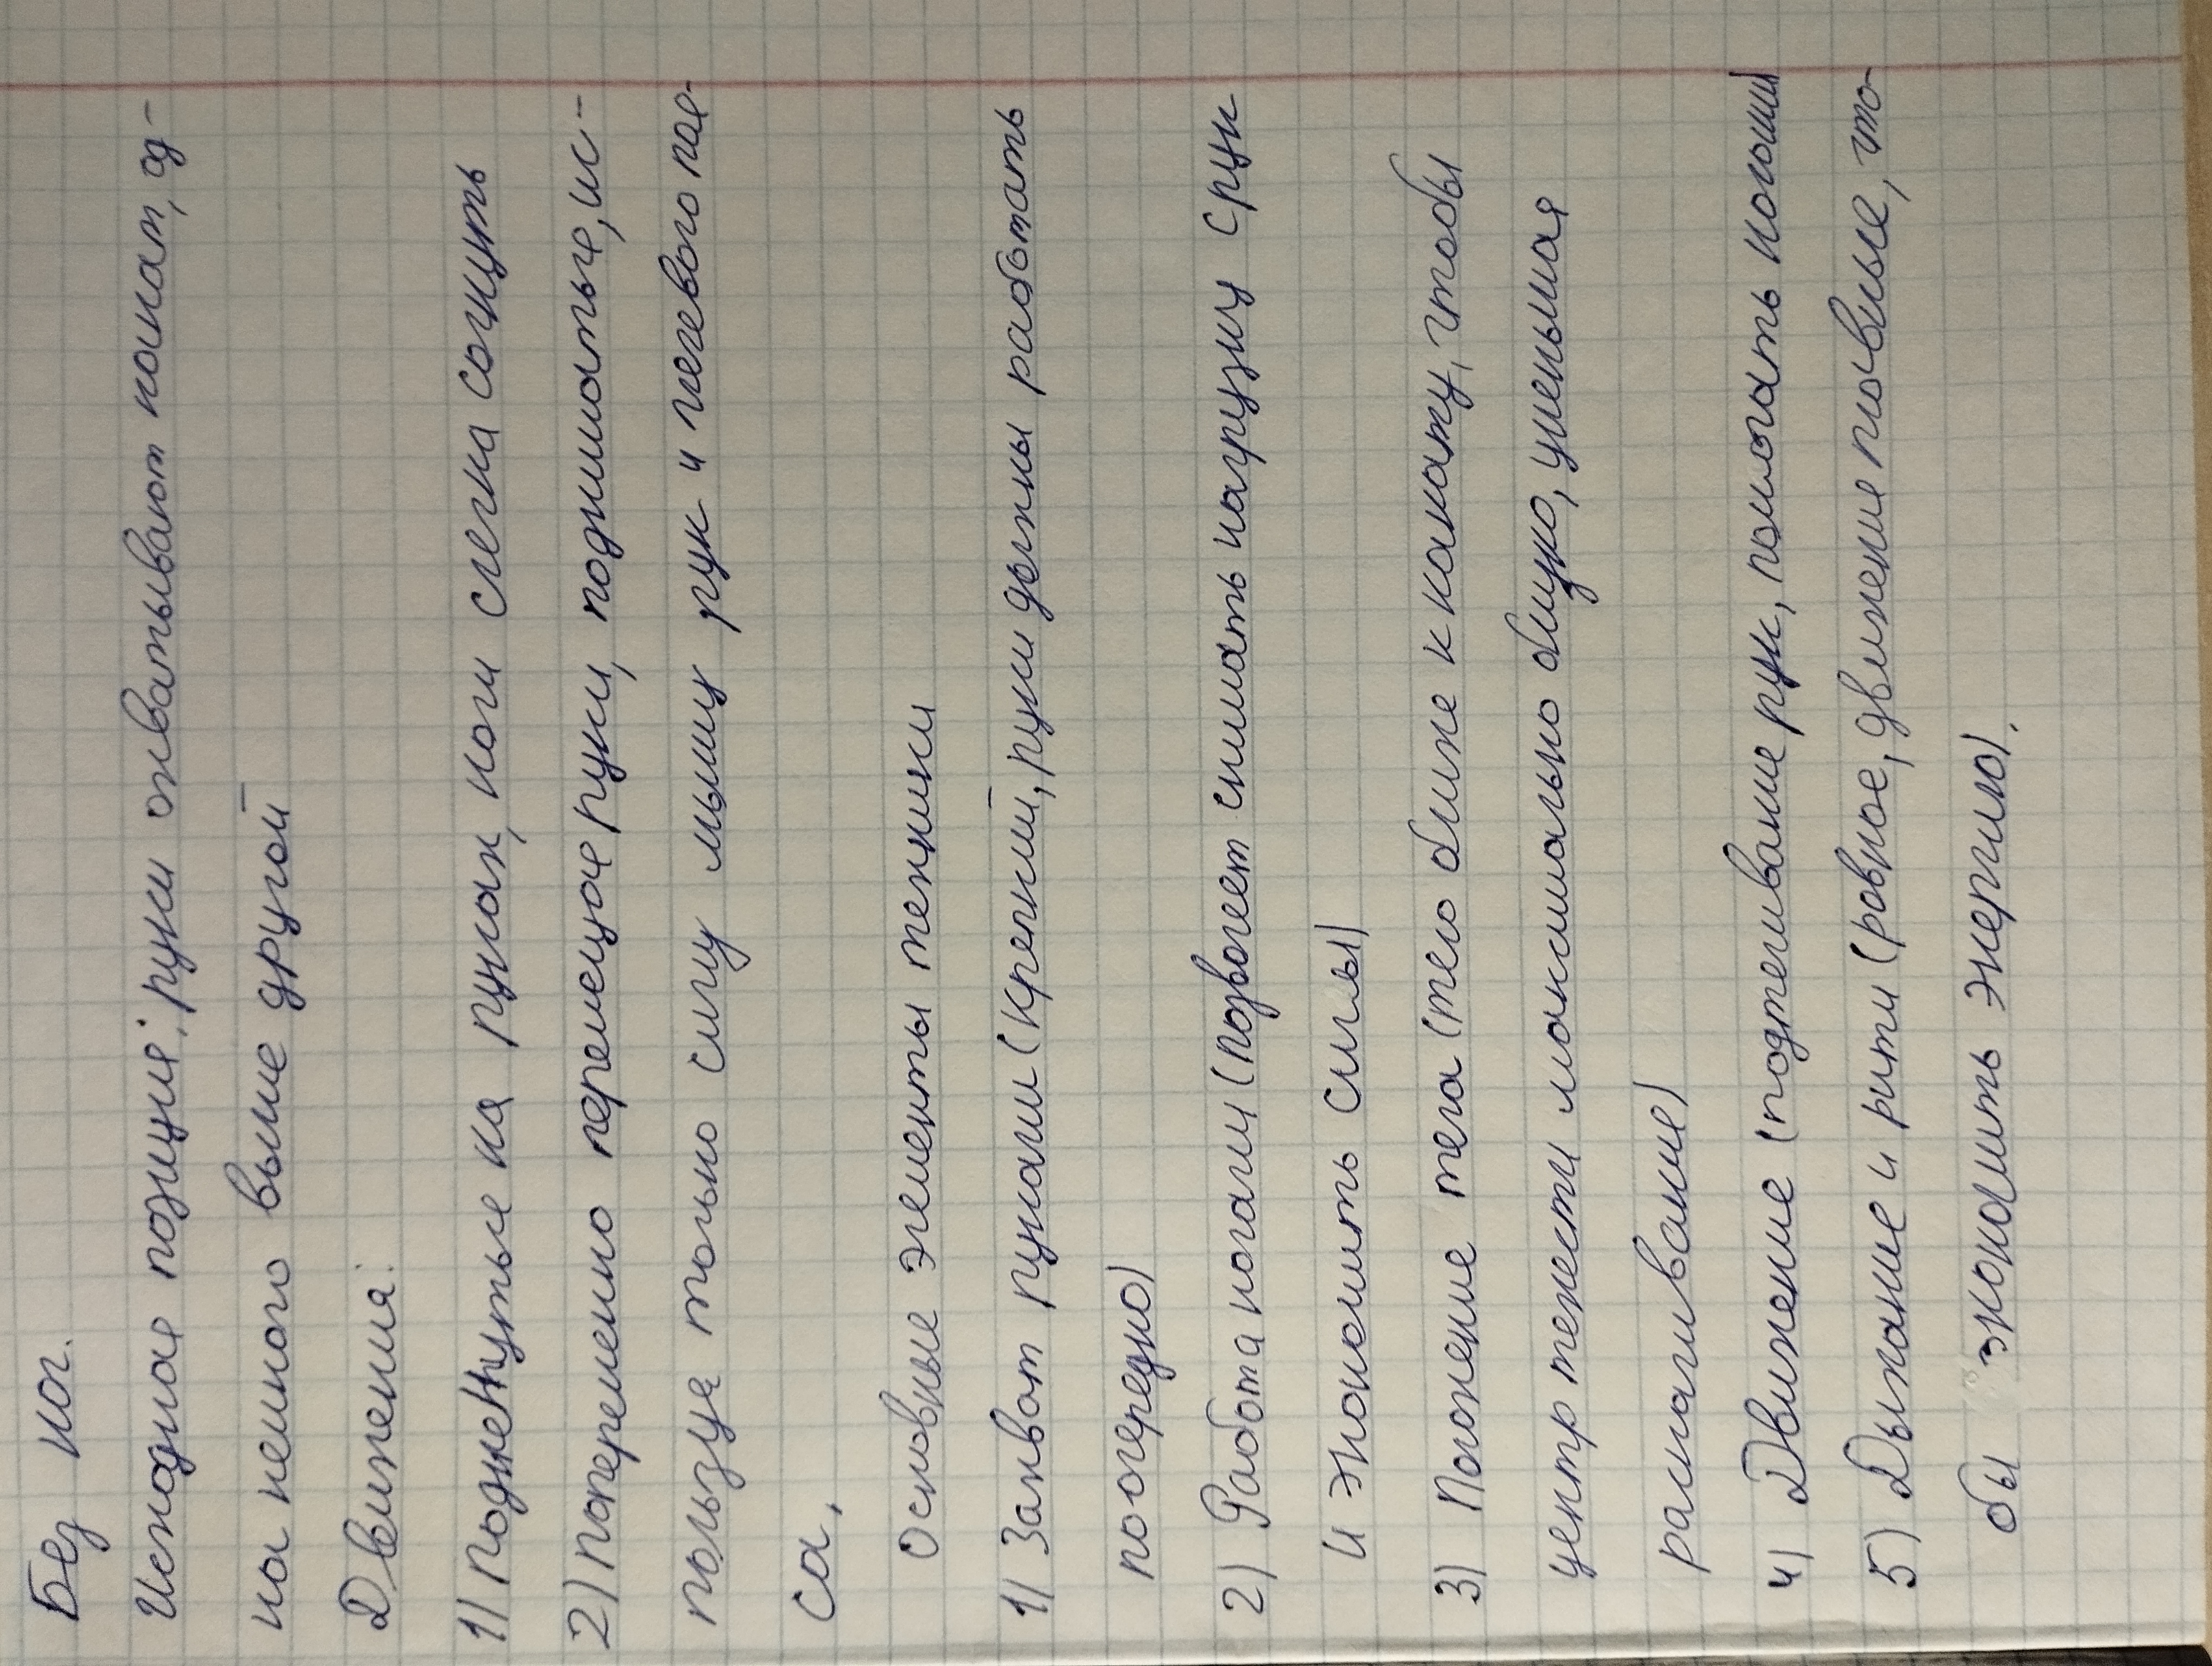 Без ног.
Исходное позиция: руки охватывают канат, од-
на немного выше другой
Движения:
1) Поджетнутые на руках, ноги слегка согнуть
2) Попеременно перемещая руки, подниматься, ис-
пользуя только силу мышц рук и плечевого поя-
са.
Основные элементы техники
1) Захват руками (крепкий, руки должны работать
поочередно)
2) Работа ногами (позволяет снимать нагрузку с рук
и экономить силы)
3) Положение тела (тело ближе к канату, чтобы
центр тяжести максимально близко, уменьшая
раскачивание)
4) Движение (подтягивание рук, помогать ногами)
5) Дыхание и ритм (ровное, движение плавные, что-
бы экономить энергию).